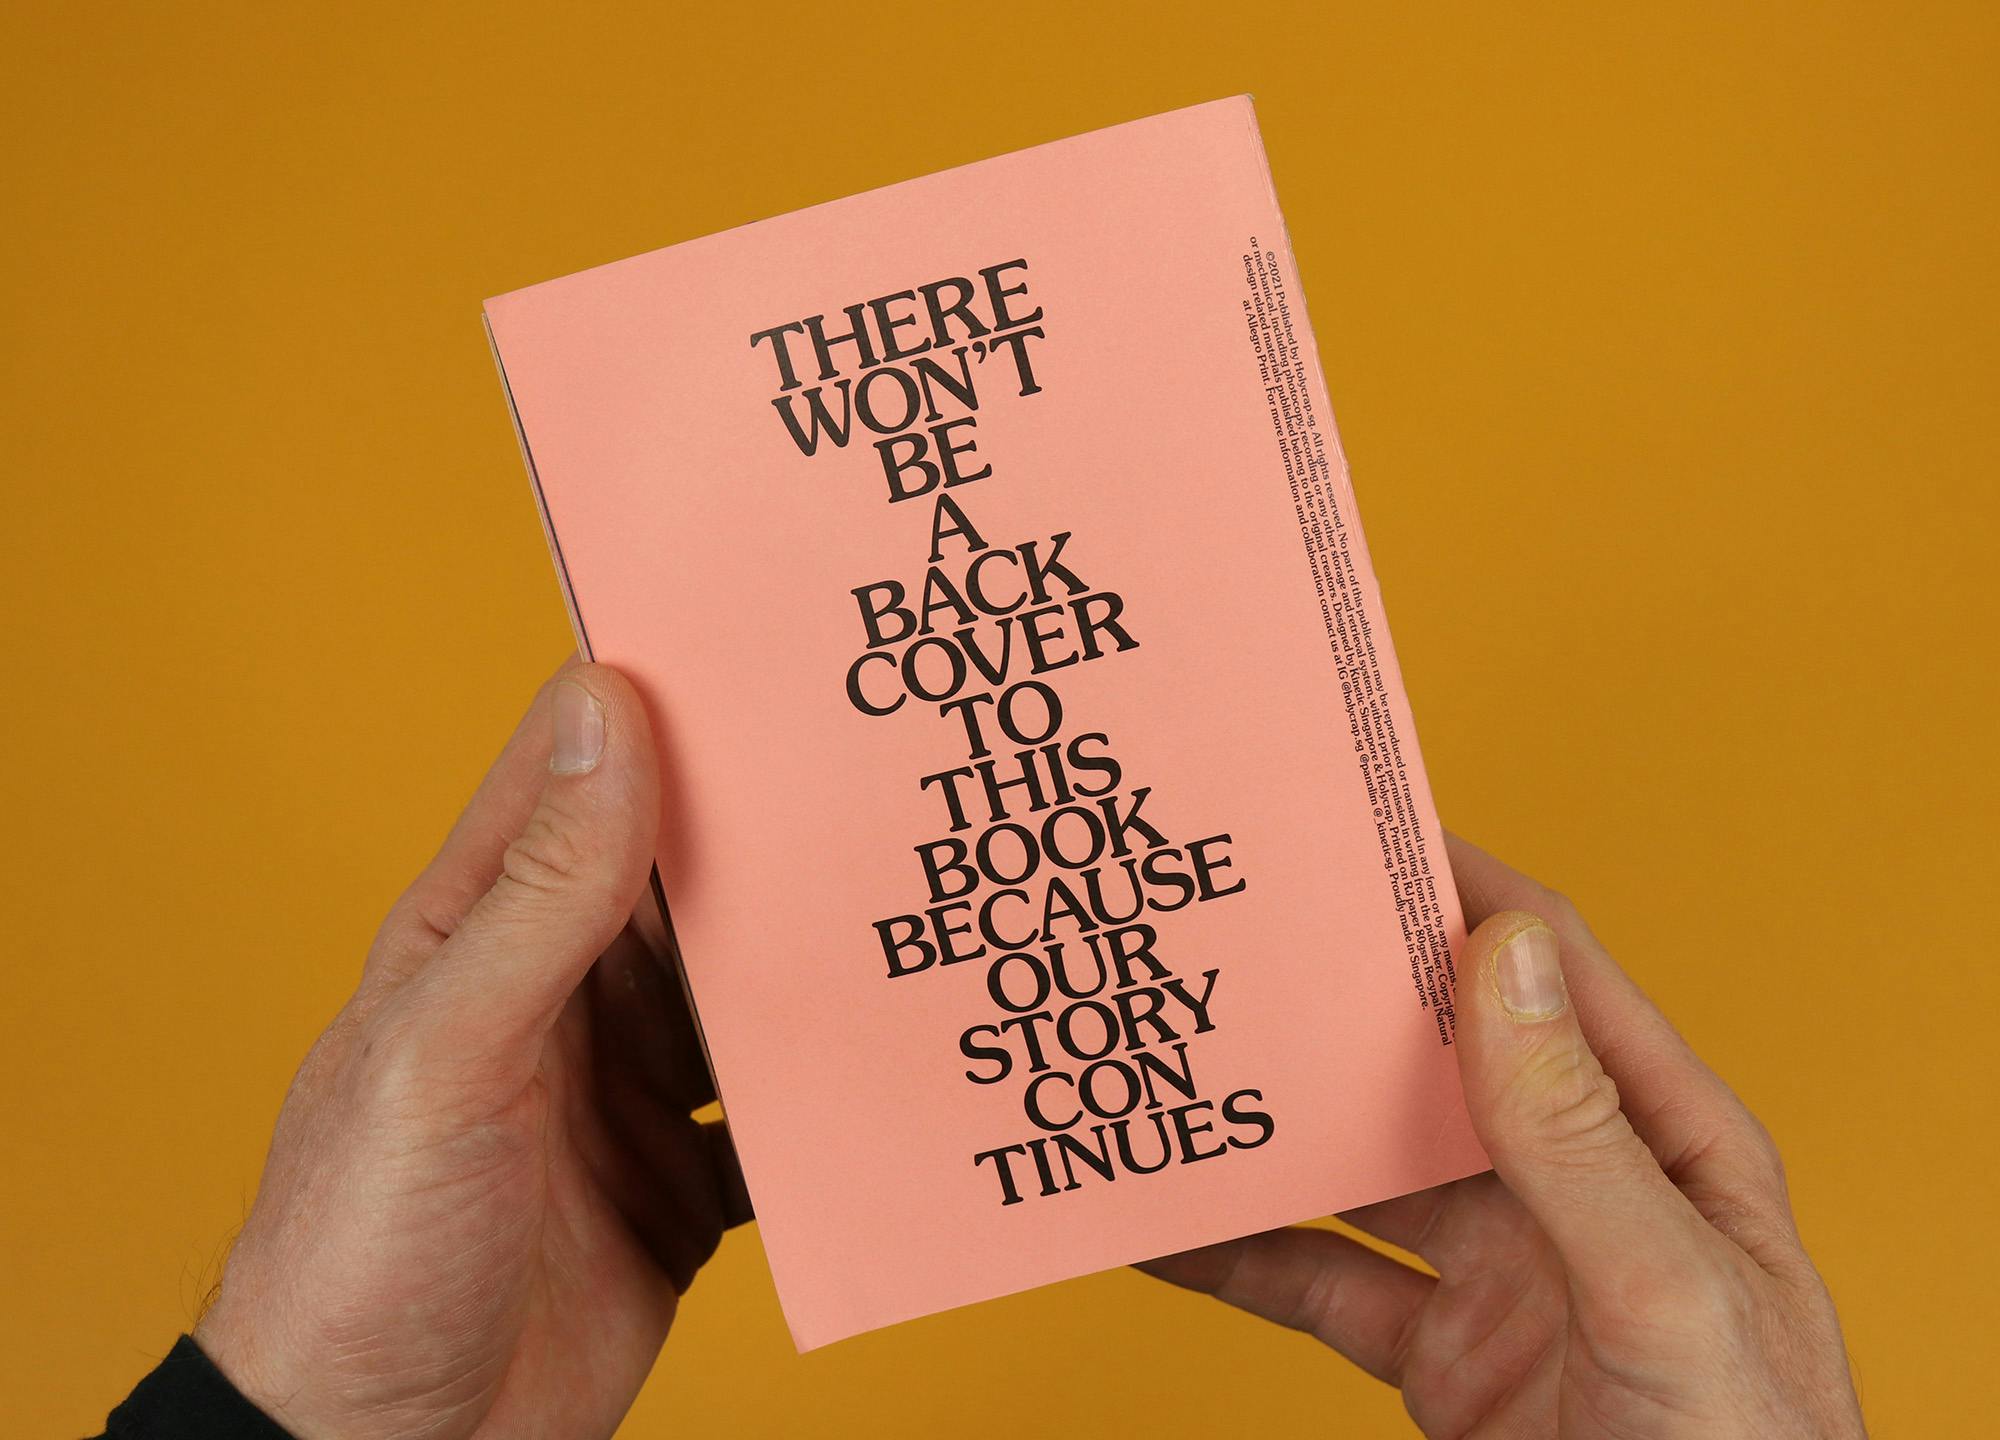 THERE
WON'T
BE
A
BACK
COVER
TO
THIS
BOOK
BECAUSE
OUR
STORY
CON
TINUES
©2021 Published by Holycrap.sg. All rights reserved. No part of this publication may be reproduced or transmitted in any form or by any means,
or mechanical, including photocopy, recording or any other storage and retrieval system, without prior permission in writing from the publisher. Copyrights
design related materials published belong to the original creators. Designed by Kinetic Singapore & Holycrap. Printed on RJ paper 80gsm Recypal Natural
at Allegro Print. For more information and collaboration contact us at IG @holycrap.sg @pannlim @_kineticsg. Proudly made in Singapore.